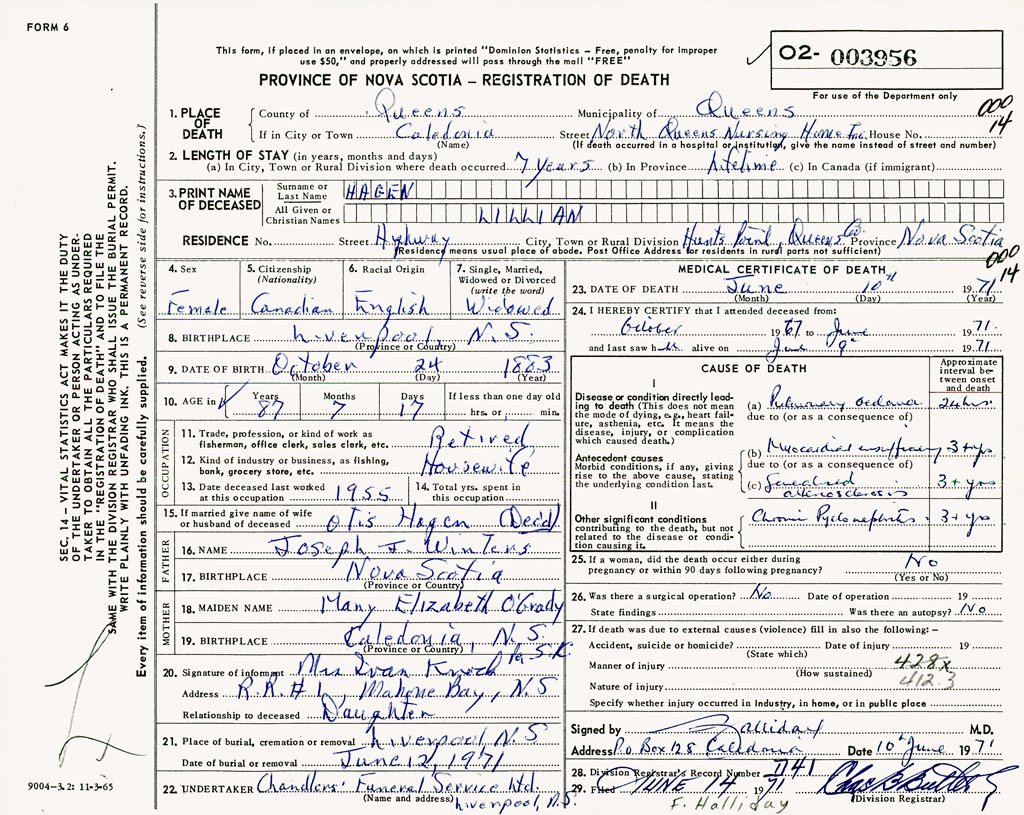 FORM 6
This form, if placed in an envelope, on which is printed "Dominion Statistics – Free, penalty for improper
use $50," and properly addressed will pass through the mail "FREE"
O2- 003956
For use of the Department only
PROVINCE OF NOVA SCOTIA – REGISTRATION OF DEATH
1. PLACE OF DEATH County of Queens Municipality of Queens
000 14
If in City or Town Caledonia Street North Queens Nursing Home Inc. House No.
(Name) (If death occurred in a hospital or institution, give the name instead of street and number)
2. LENGTH OF STAY (in years, months and days)
(a) In City, Town or Rural Division where death occurred 7 years (b) In Province Lifetime (c) In Canada (if immigrant)
3. PRINT NAME OF DECEASED Surname or Last Name HAGEN
All Given or Christian Names LILLIAN
RESIDENCE No. Street Highway City, Town or Rural Division Hunts Point, Queens Co. Province Nova Scotia
(Residence means usual place of abode. Post Office Address for residents in rural parts not sufficient)
000 14
4. Sex Female
5. Citizenship (Nationality) Canadian
6. Racial Origin English
7. Single, Married, Widowed or Divorced (write the word) Widowed
8. BIRTHPLACE Liverpool, N.S.
(Province or Country)
9. DATE OF BIRTH October 24 1883
(Month) (Day) (Year)
10. AGE in Years Months Days If less than one day old
87 7 17 hrs. or min.
OCCUPATION
11. Trade, profession, or kind of work as fisherman, office clerk, sales clerk, etc. Retired
12. Kind of industry or business, as fishing, bank, grocery store, etc. Housewife
13. Date deceased last worked at this occupation 1955
14. Total yrs. spent in this occupation
15. If married give name of wife or husband of deceased Otis Hagen (Dec'd)
FATHER
16. NAME Joseph J. Winters
17. BIRTHPLACE Nova Scotia
(Province or Country)
MOTHER
18. MAIDEN NAME Mary Elizabeth O'Grady
19. BIRTHPLACE Caledonia, N.S.
(Province or Country)
20. Signature of informant Mrs Ivan
Address R.R. #1, Mahone Bay, N.S
Relationship to deceased Daughter
21. Place of burial, cremation or removal Liverpool, N.S
Date of burial or removal June 12, 1971
22. UNDERTAKER Chandlers' Funeral Service Ltd.
(Name and address) Liverpool, N.S.
MEDICAL CERTIFICATE OF DEATH
23. DATE OF DEATH June 10th 1971
(Month) (Day) (Year)
24. I HEREBY CERTIFY that I attended deceased from:
October 1967 to June 1971
and last saw her alive on June 9th 1971
CAUSE OF DEATH
Approximate interval between onset and death
I
Disease or condition directly leading to death (This does not mean the mode of dying, e.g., heart failure, asthenia, etc. It means the disease, injury, or complication which caused death.)
(a) Pulmonary oedema 24 hrs.
due to (or as a consequence of)
Antecedent causes
Morbid conditions, if any, giving rise to the above cause, stating the underlying condition last.
(b) Myocardial insufficiency 3+ yrs
due to (or as a consequence of)
(c) Generalised arteriosclerosis 3+ yrs
II
Other significant conditions contributing to the death, but not related to the disease or condition causing it.
Chronic Pyelonephritis 3+ yrs
25. If a woman, did the death occur either during pregnancy or within 90 days following pregnancy? No
(Yes or No)
26. Was there a surgical operation? No. Date of operation 19
State findings Was there an autopsy? No
27. If death was due to external causes (violence) fill in also the following: –
Accident, suicide or homicide? Date of injury 19
(State which)
Manner of injury 428x
(How sustained)
412.3
Nature of injury
Specify whether injury occurred in industry, in home, or in public place
Signed by Halliday M.D.
Address P.O. Box 128 Caledonia Date 10th June 1971
28. Division Registrar's Record Number 741
29. Filed JUNE 14 1971
(Division Registrar)
F. Halliday
SEC. 14 – VITAL STATISTICS ACT MAKES IT THE DUTY
OF THE UNDERTAKER OR PERSON ACTING AS UNDER-
TAKER TO OBTAIN ALL THE PARTICULARS REQUIRED
IN THE "REGISTRATION OF DEATH" AND TO FILE THE
SAME WITH THE DIVISION REGISTRAR WHO SHALL ISSUE THE BURIAL PERMIT.
WRITE PLAINLY WITH UNFADING INK. THIS IS A PERMANENT RECORD.
Every item of information should be carefully supplied. (See reverse side for instructions.)
9004-3.2: 11-3-65